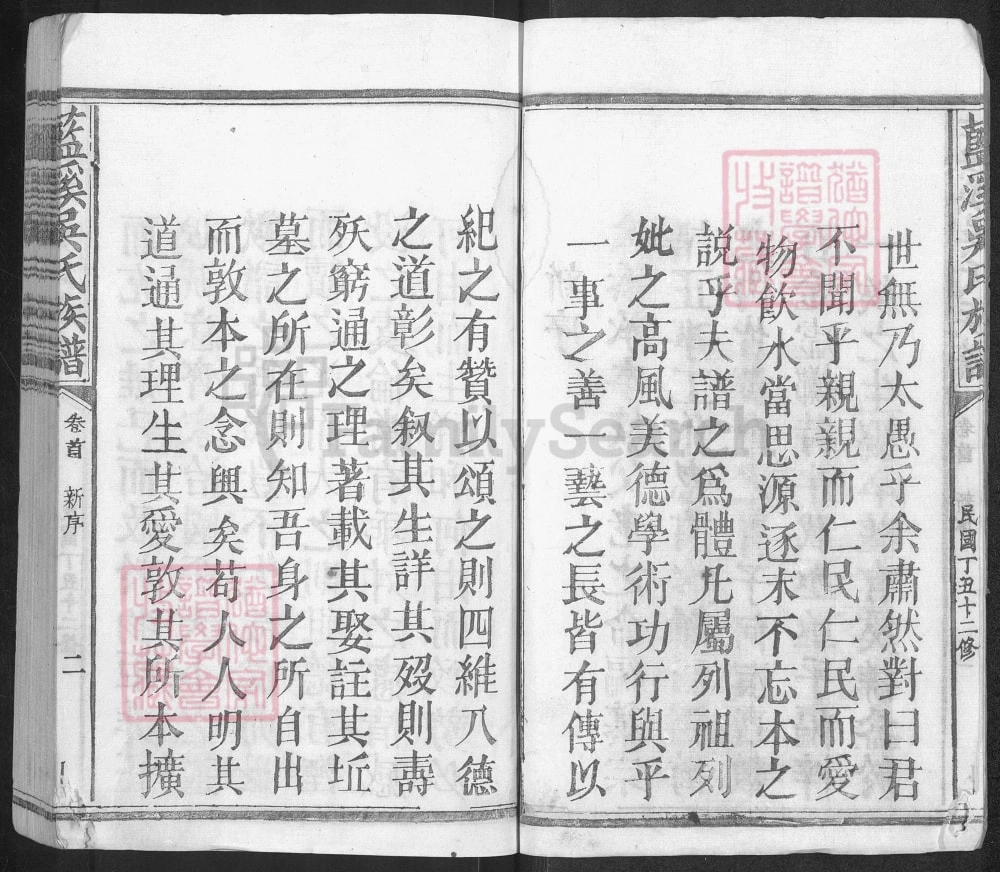 藍溪吳氏族譜
民國丁丑十二修
世無乃太愚乎余肅然對曰君
不聞乎親親而仁民仁民而愛
物飲水當思源逐末不忘本之
說乎夫譜之爲體凡屬列祖列
妣之高風美德學術功行與乎
一事之善一藝之長皆有傳以
紀之有贊以頌之則四維八德
之道彰矣叙其生詳其歿則壽
殀窮通之理著載其娶註其坵
墓之所在則知吾身之所自出
而敦本之念興矣苟人人明其
道通其理生其愛敦其所本擴
藍溪吳氏族譜
卷首
新序
二
FamilySearch